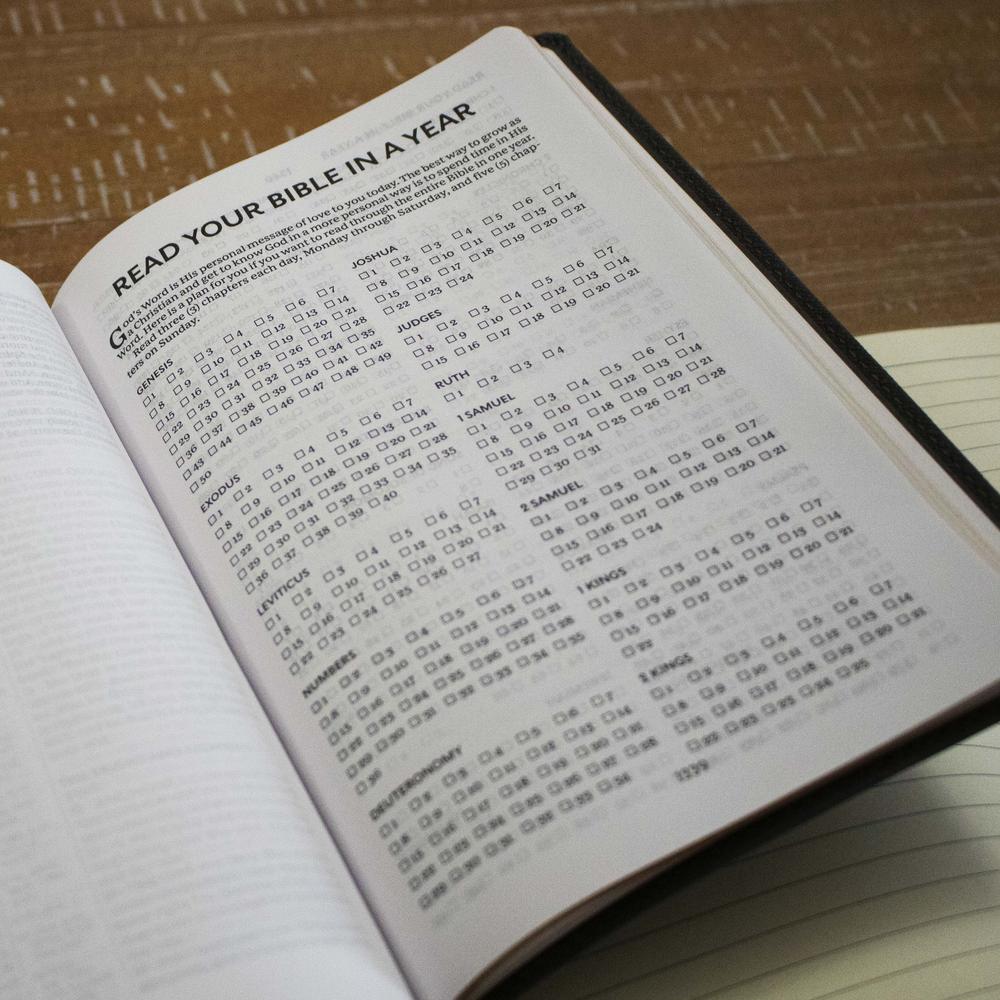 READ YOUR BIBLE IN A YEAR
God's Word is His personal message of love to you today. The best way to grow as
a Christian and get to know God in a more personal way is to spend time in His
Word. Here is a plan for you if you want to read through the entire Bible in one year.
Read three (3) chapters each day, Monday through Saturday, and five (5) chap-
ters on Sunday.
GENESIS
□1 □2 □3 □4 □5 □6 □7
□8 □9 □10 □11 □12 □13 □14
□15 □16 □17 □18 □19 □20 □21
□22 □23 □24 □25 □26 □27 □28
□29 □30 □31 □32 □33 □34 □35
□36 □37 □38 □39 □40 □41 □42
□43 □44 □45 □46 □47 □48 □49
□50
EXODUS
□1 □2 □3 □4 □5 □6 □7
□8 □9 □10 □11 □12 □13 □14
□15 □16 □17 □18 □19 □20 □21
□22 □23 □24 □25 □26 □27 □28
□29 □30 □31 □32 □33 □34 □35
□36 □37 □38 □39 □40
LEVITICUS
□1 □2 □3 □4 □5 □6 □7
□8 □9 □10 □11 □12 □13 □14
□15 □16 □17 □18 □19 □20 □21
□22 □23 □24 □25 □26 □27
NUMBERS
□1 □2 □3 □4 □5 □6 □7
□8 □9 □10 □11 □12 □13 □14
□15 □16 □17 □18 □19 □20 □21
□22 □23 □24 □25 □26 □27 □28
□29 □30 □31 □32 □33 □34 □35
□36
DEUTERONOMY
□1 □2 □3 □4 □5 □6 □7
□8 □9 □10 □11 □12 □13 □14
□15 □16 □17 □18 □19 □20 □21
□22 □23 □24 □25 □26 □27 □28
□29 □30 □31 □32 □33 □34
JOSHUA
□1 □2 □3 □4 □5 □6 □7
□8 □9 □10 □11 □12 □13 □14
□15 □16 □17 □18 □19 □20 □21
□22 □23 □24
JUDGES
□1 □2 □3 □4 □5 □6 □7
□8 □9 □10 □11 □12 □13 □14
□15 □16 □17 □18 □19 □20 □21
RUTH
□1 □2 □3 □4
1 SAMUEL
□1 □2 □3 □4 □5 □6 □7
□8 □9 □10 □11 □12 □13 □14
□15 □16 □17 □18 □19 □20 □21
□22 □23 □24 □25 □26 □27 □28
□29 □30 □31
2 SAMUEL
□1 □2 □3 □4 □5 □6 □7
□8 □9 □10 □11 □12 □13 □14
□15 □16 □17 □18 □19 □20 □21
□22 □23 □24
1 KINGS
□1 □2 □3 □4 □5 □6 □7
□8 □9 □10 □11 □12 □13 □14
□15 □16 □17 □18 □19 □20 □21
□22
2 KINGS
□1 □2 □3 □4 □5 □6 □7
□8 □9 □10 □11 □12 □13 □14
□15 □16 □17 □18 □19 □20 □21
□22 □23 □24 □25